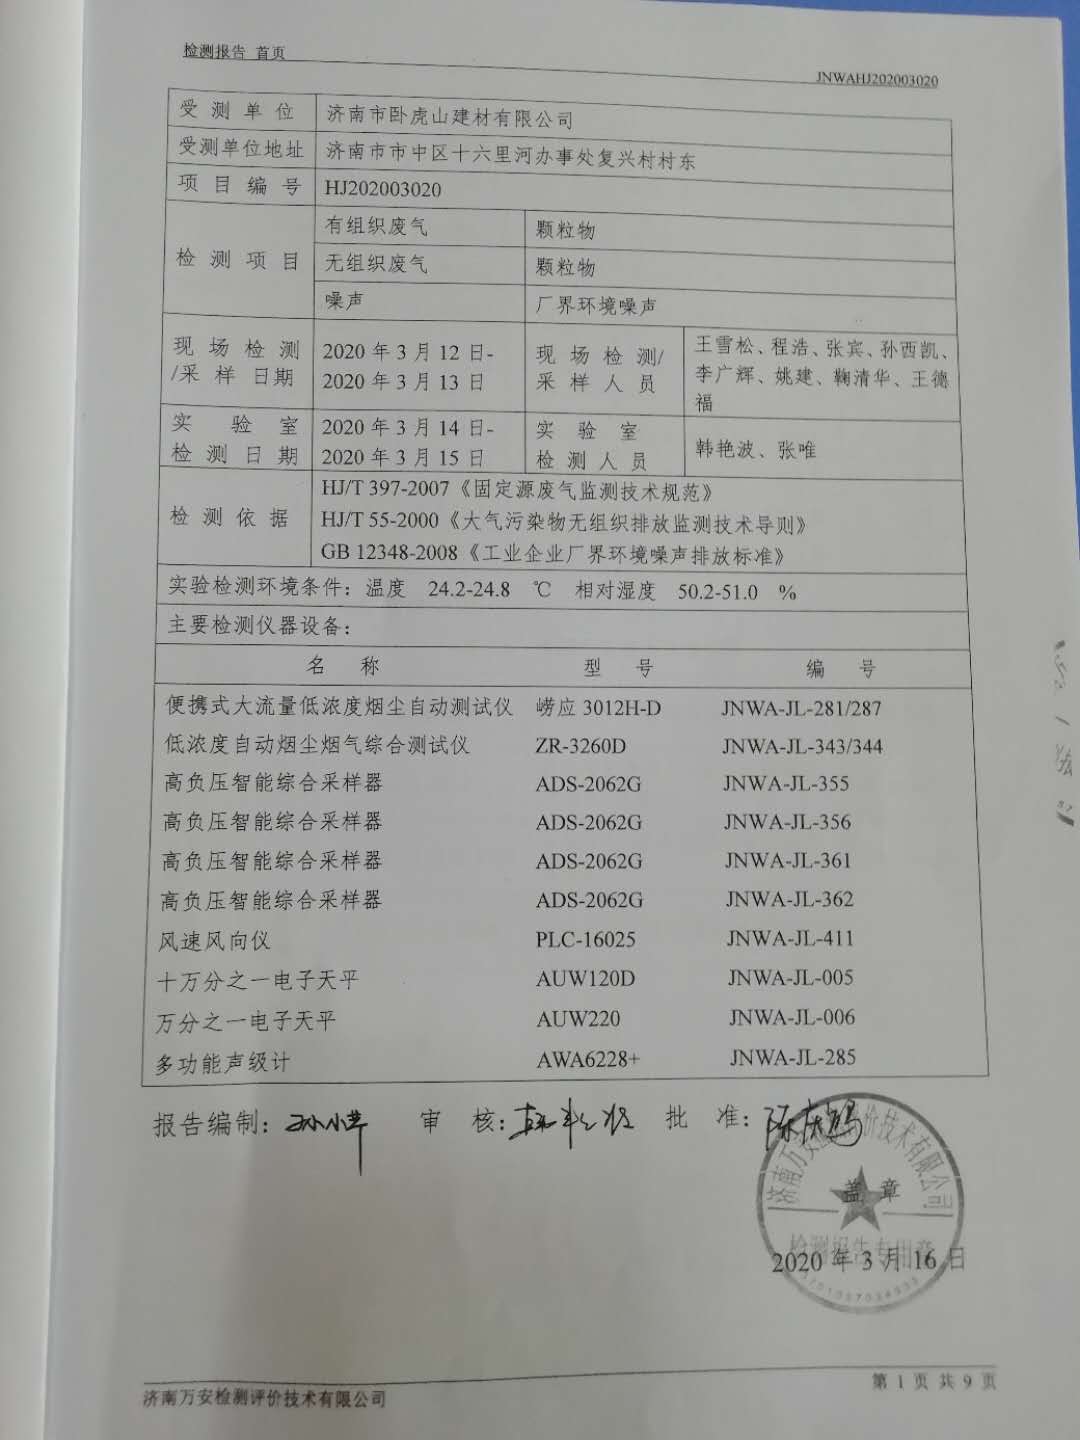 检测报告 首页
JNWAHJ202003020
受测单位 济南市卧虎山建材有限公司
受测单位地址 济南市市中区十六里河办事处复兴村村东
项目编号 HJ202003020
检测项目
有组织废气 颗粒物
无组织废气 颗粒物
噪声 厂界环境噪声
现场检测/采样日期
2020年3月12日-
2020年3月13日
现场检测/采样人员
王雪松、程浩、张宾、孙西凯、
李广辉、姚建、鞠清华、王德
福
实验室检测日期
2020年3月14日-
2020年3月15日
实验室检测人员
韩艳波、张唯
检测依据
HJ/T 397-2007《固定源废气监测技术规范》
HJ/T 55-2000《大气污染物无组织排放监测技术导则》
GB 12348-2008《工业企业厂界环境噪声排放标准》
实验检测环境条件：温度 24.2-24.8 ℃ 相对湿度 50.2-51.0 %
主要检测仪器设备：
名称 型号 编号
便携式大流量低浓度烟尘自动测试仪 崂应 3012H-D JNWA-JL-281/287
低浓度自动烟尘烟气综合测试仪 ZR-3260D JNWA-JL-343/344
高负压智能综合采样器 ADS-2062G JNWA-JL-355
高负压智能综合采样器 ADS-2062G JNWA-JL-356
高负压智能综合采样器 ADS-2062G JNWA-JL-361
高负压智能综合采样器 ADS-2062G JNWA-JL-362
风速风向仪 PLC-16025 JNWA-JL-411
十万分之一电子天平 AUW120D JNWA-JL-005
万分之一电子天平 AUW220 JNWA-JL-006
多功能声级计 AWA6228+ JNWA-JL-285
报告编制： 审核： 批准：
盖章
检测报告专用章
2020年3月16日
济南万安检测评价技术有限公司
第1页共9页